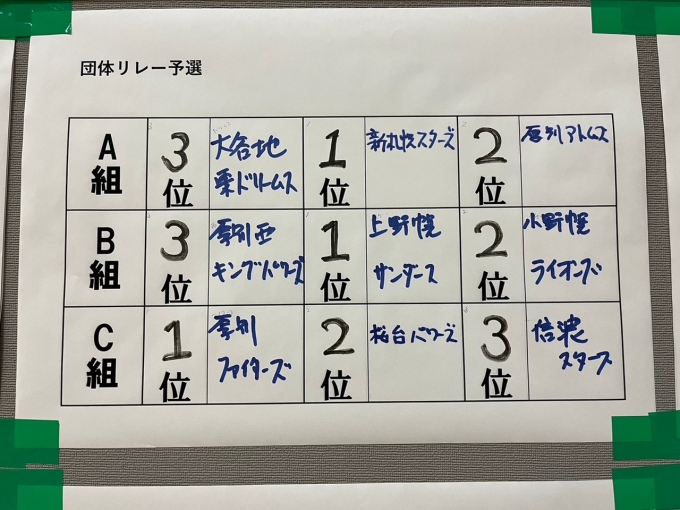 団体リレー予選
A組 3位 大谷地東ドリームス 1位 新札幌スターズ 2位 厚別アトムズ
B組 3位 厚別西キングパワーズ 1位 上野幌サンダース 2位 小野幌ライオンズ
C組 1位 厚別ファイターズ 2位 桜台パワーズ 3位 信濃スターズ